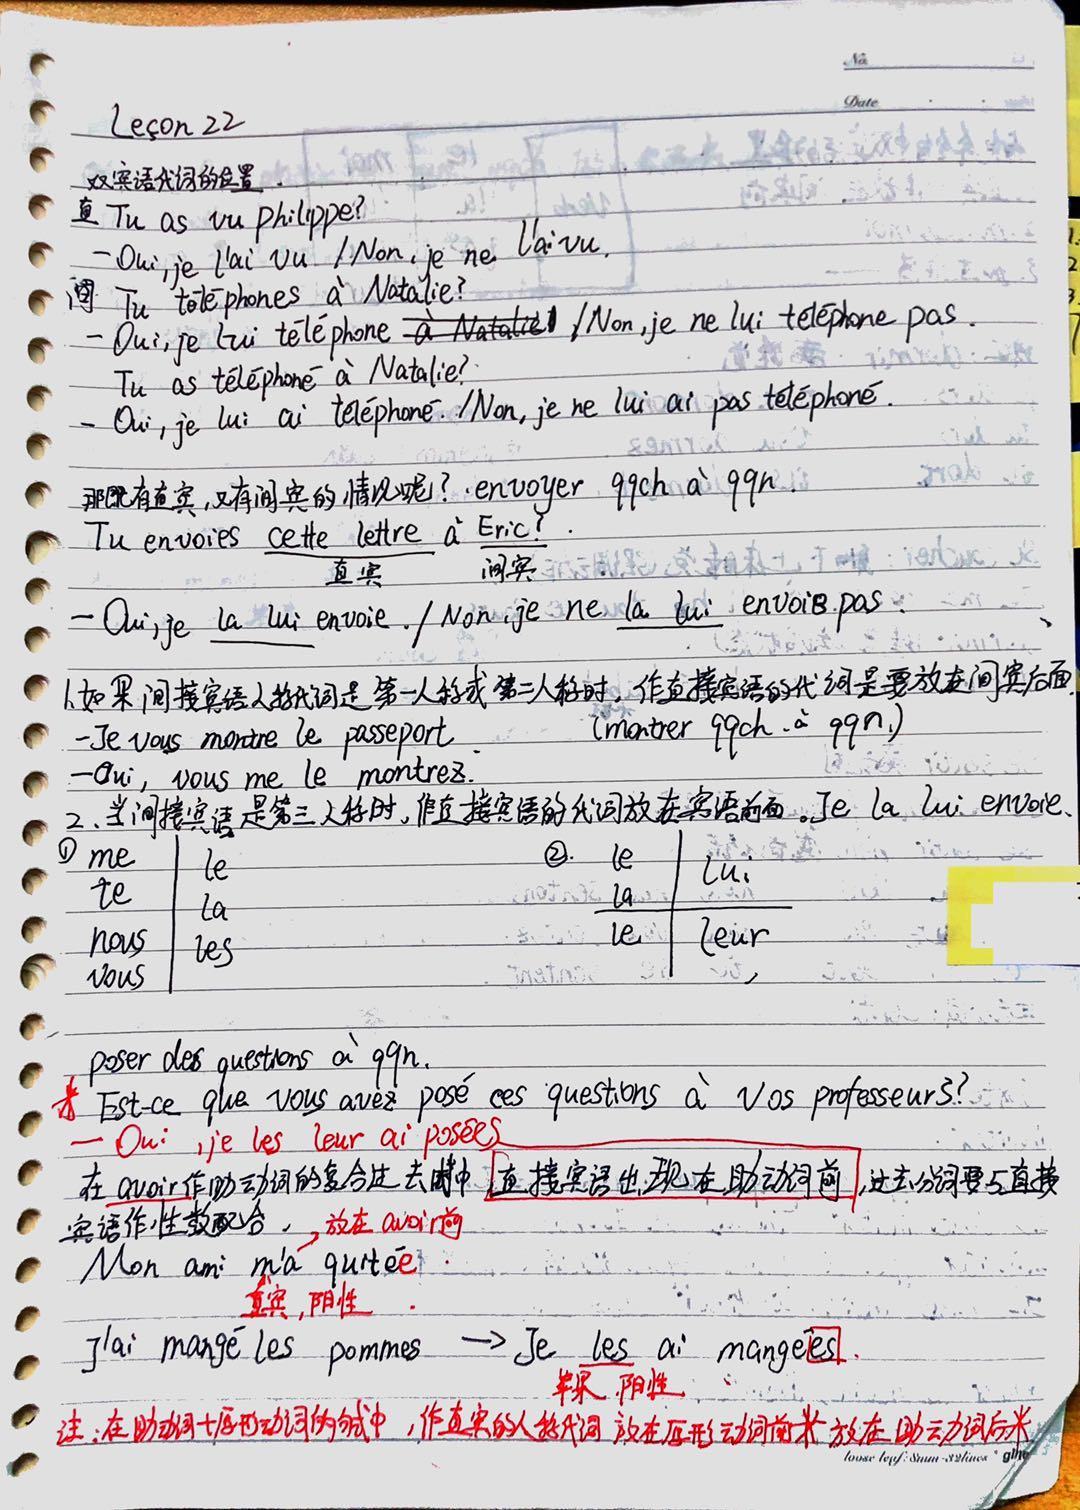 No.
Date
Leçon 22
双宾语代词的位置.
直 Tu as vu philippe?
- Oui, je l'ai vu / Non, je ne l'ai vu.
间 Tu téléphones à Natalie?
- Oui, je lui téléphone à Natalie / Non, je ne lui téléphone pas.
Tu as téléphoné à Natalie?
- Oui, je lui ai téléphoné. / Non, je ne lui ai pas téléphoné.
那既有直宾,又有间宾的情况呢? envoyer qqch à qqn.
Tu envoies cette lettre à Eric?
直宾 间宾
- Oui, je la lui envoie. / Non, je ne la lui envoie pas.
1.如果间接宾语人称代词是第一人称或第二人称时,作直接宾语的代词是要放在间宾后面
-Je vous montre le passeport (montrer qqch. à qqn.)
-Oui, vous me le montrez.
2、当间接宾语是第三人称时,作直接宾语的代词放在宾语前面。Je la lui envoie.
① me le ② le lui
te la la
nous les le leur
vous
poser des questions à qqn.
* Est-ce que vous avez posé ces questions à vos professeurs?
- Oui, je les leur ai posées
在avoir作助动词的复合过去时中直接宾语出现在助动词前,过去分词要与直接
宾语作性数配合. 放在avoir前
Mon ami m'a quitée.
直宾,阴性.
J'ai mangé les pommes → Je les ai mangées.
苹果 阴性
注:在助动词+原形动词的句式中,作直宾的人称代词放在原形动词前米放在助动词后米
loose leaf: 8mm-32lines